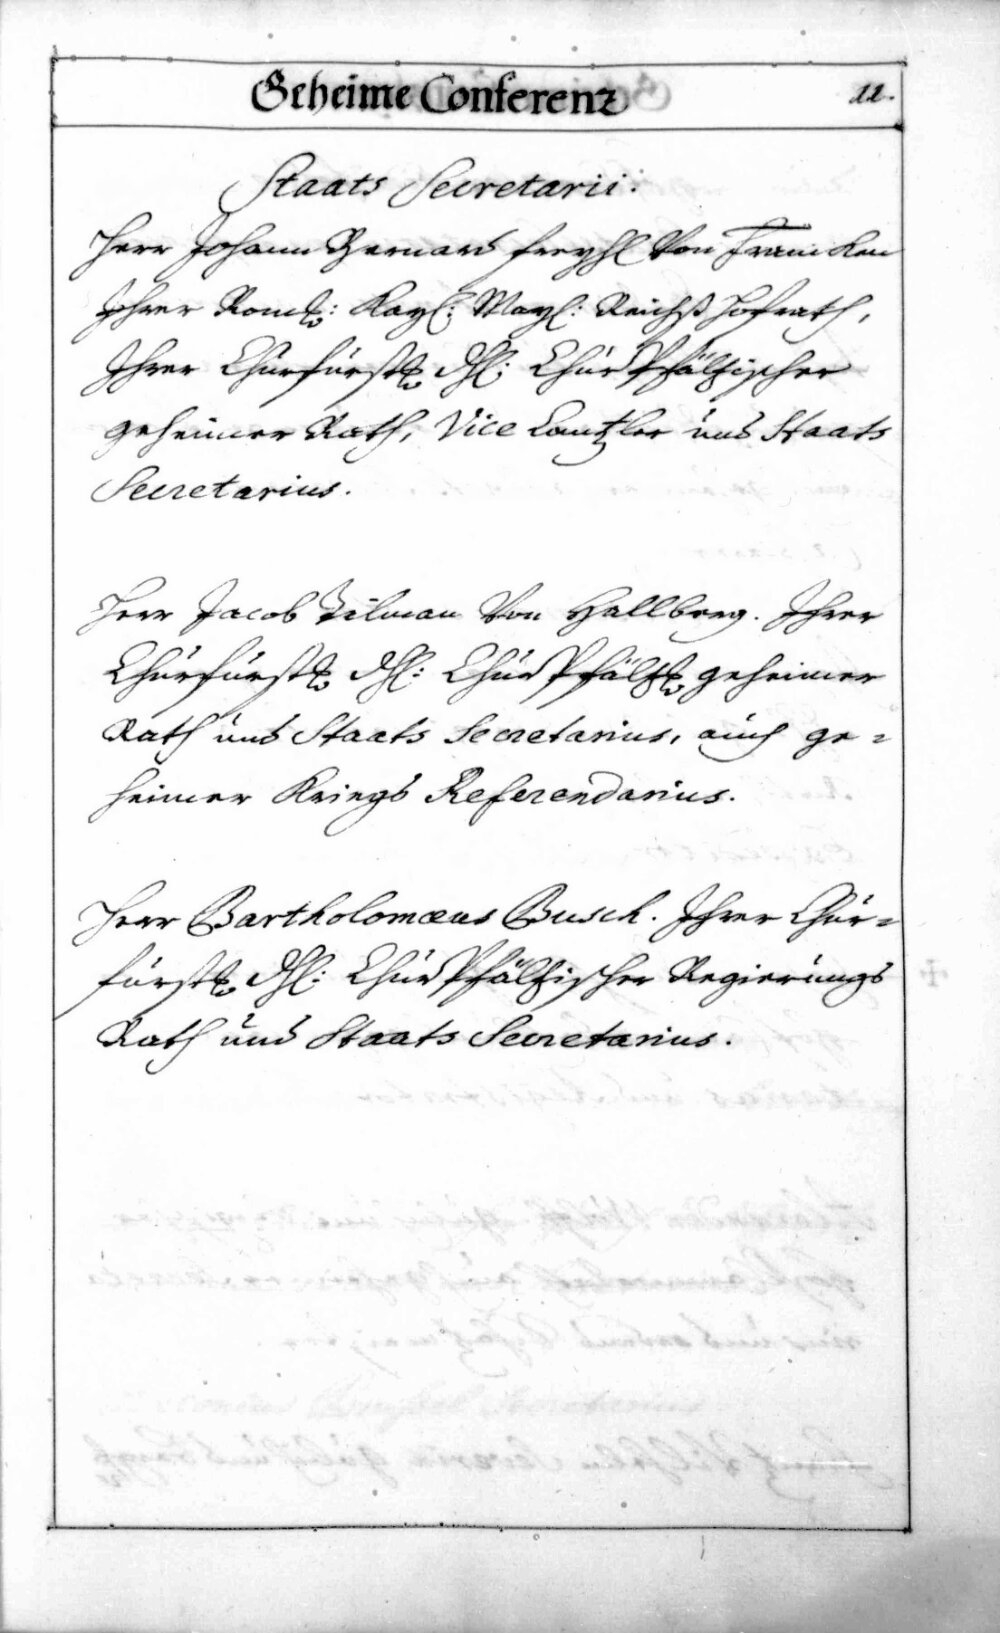 Geheime Conferenz
11.
Staats Secretarii:
Herr Johann Bernard freyhl von Francken
Ihrer Röml: Kayl: Mayl: Reichß Hofrath,
Ihrer Chürfürstl dhl: Chür Pfältzischer
geheimer Rath, Vice Cantzler und Staats
Secretarius.
Herr Jacob Tilman von Hallberg. Ihrer
Chürfürstl dhl: Chür Pfältzl geheimer
Rath und Staats Secretarius, auch ge=
heimer Kriegs Referendarius.
Herr Bartholomæus Busch. Ihrer Chür=
fürstl dhl: Chür Pfältzischer Regierungs
Rath und Staats Secretarius.